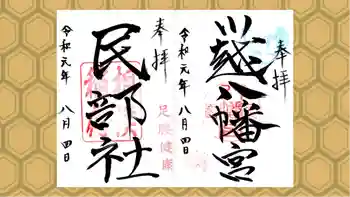 奉拝
川越八幡宮
令和元年 八月四日
奉拝
民部社
足腰健康
令和元年 八月四日